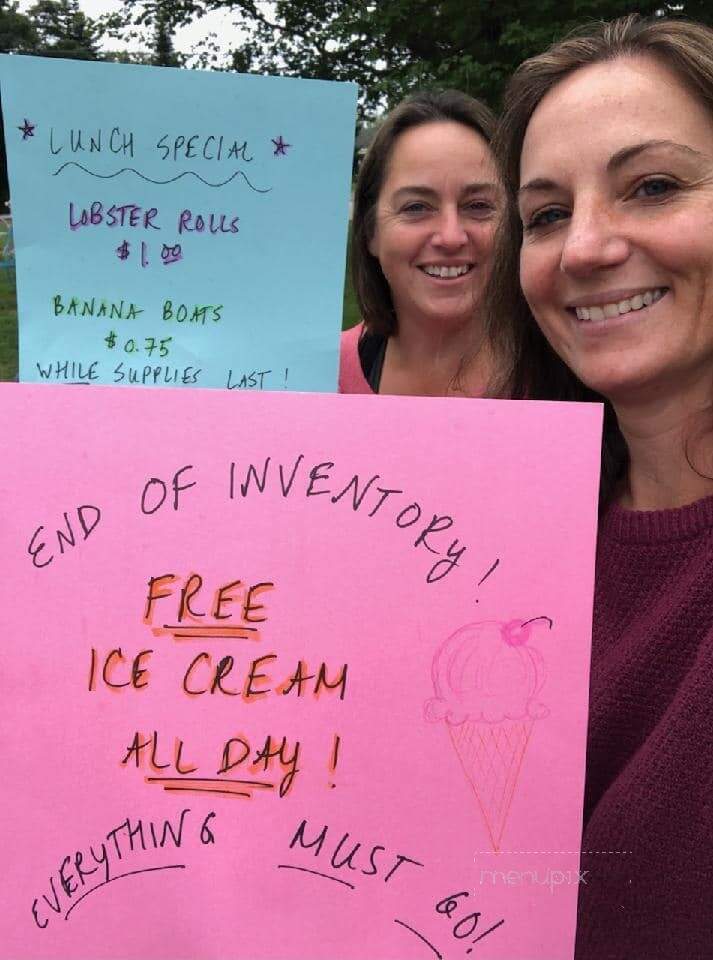 * LUNCH SPECIAL *
LOBSTER ROLLS
$1.00
BANANA BOATS
$0.75
WHILE SUPPLIES LAST!
END OF INVENTORY!
FREE
ICE CREAM
ALL DAY!
EVERYTHING MUST GO!
menupix